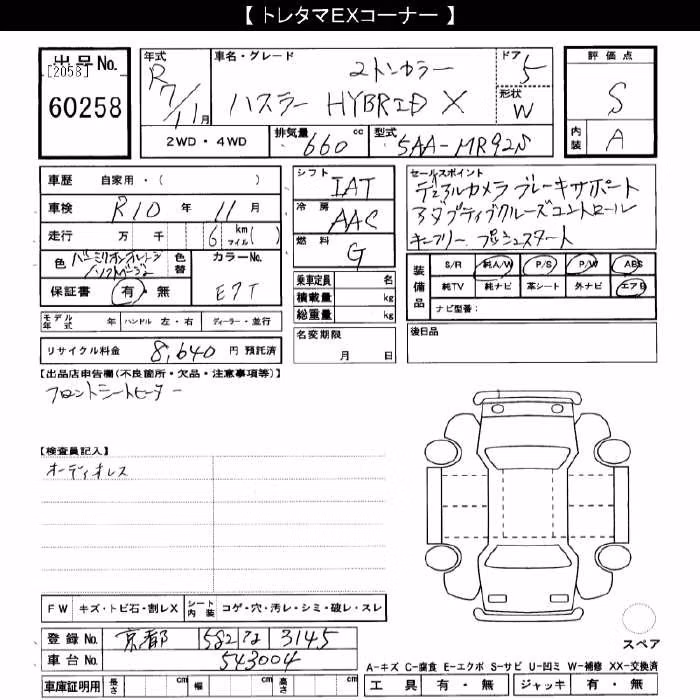 【 トレタマEXコーナー 】
出品No.
[2058]
60258
年式 R7/11月
車名・グレード 2トンカラー
ハスラー HYBRID X
ドア 5
形状 W
評価点
S
内装 A
2WD・4WD 排気量 660cc 型式 5AA-MR92S
車歴 自家用・( )
車検 R10年 11月
走行 万 千 6 km マイル( )
色 色替 カラーNo.
E7T
保証書 有・無
モデル年式 年 ハンドル 左・右 ディーラー・並行
リサイクル料金 8,640 円 預託済
シフト IAT
冷房 AAC
燃料 G
乗車定員 名
積載量 kg
総重量 kg
名変期限
月 日
セールスポイント
デュアルカメラブレーキサポート
アダプティブクルーズコントロール
キーフリー プッシュスタート
装備品 S/R 純A/W P/S P/W ABS
純TV 純ナビ 革シート 外ナビ エアB
ナビ型番:
後日品
【出品店申告欄(不良箇所・欠品・注意事項等)】
フロントシートヒーター
【検査員記入】
オーディオレス
FW キズ・トビ石・割レX シート内装 コゲ・穴・汚レ・シミ・破レ・スレ
登録No. 京都 582 3145
車台No. 543004
車庫証明用 長さ cm 幅 cm 高さ cm
スペア
A-キズ C-腐食 E-エクボ S-サビ U-凹ミ W-補修 XX-交換済
工具 有・無 ジャッキ 有・無